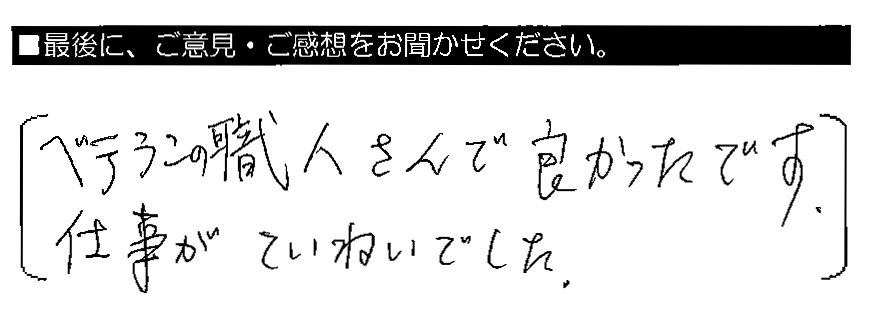 ■最後に、ご意見・ご感想をお聞かせください。
ベテランの職人さんで良かったです.
仕事がていねいでした.